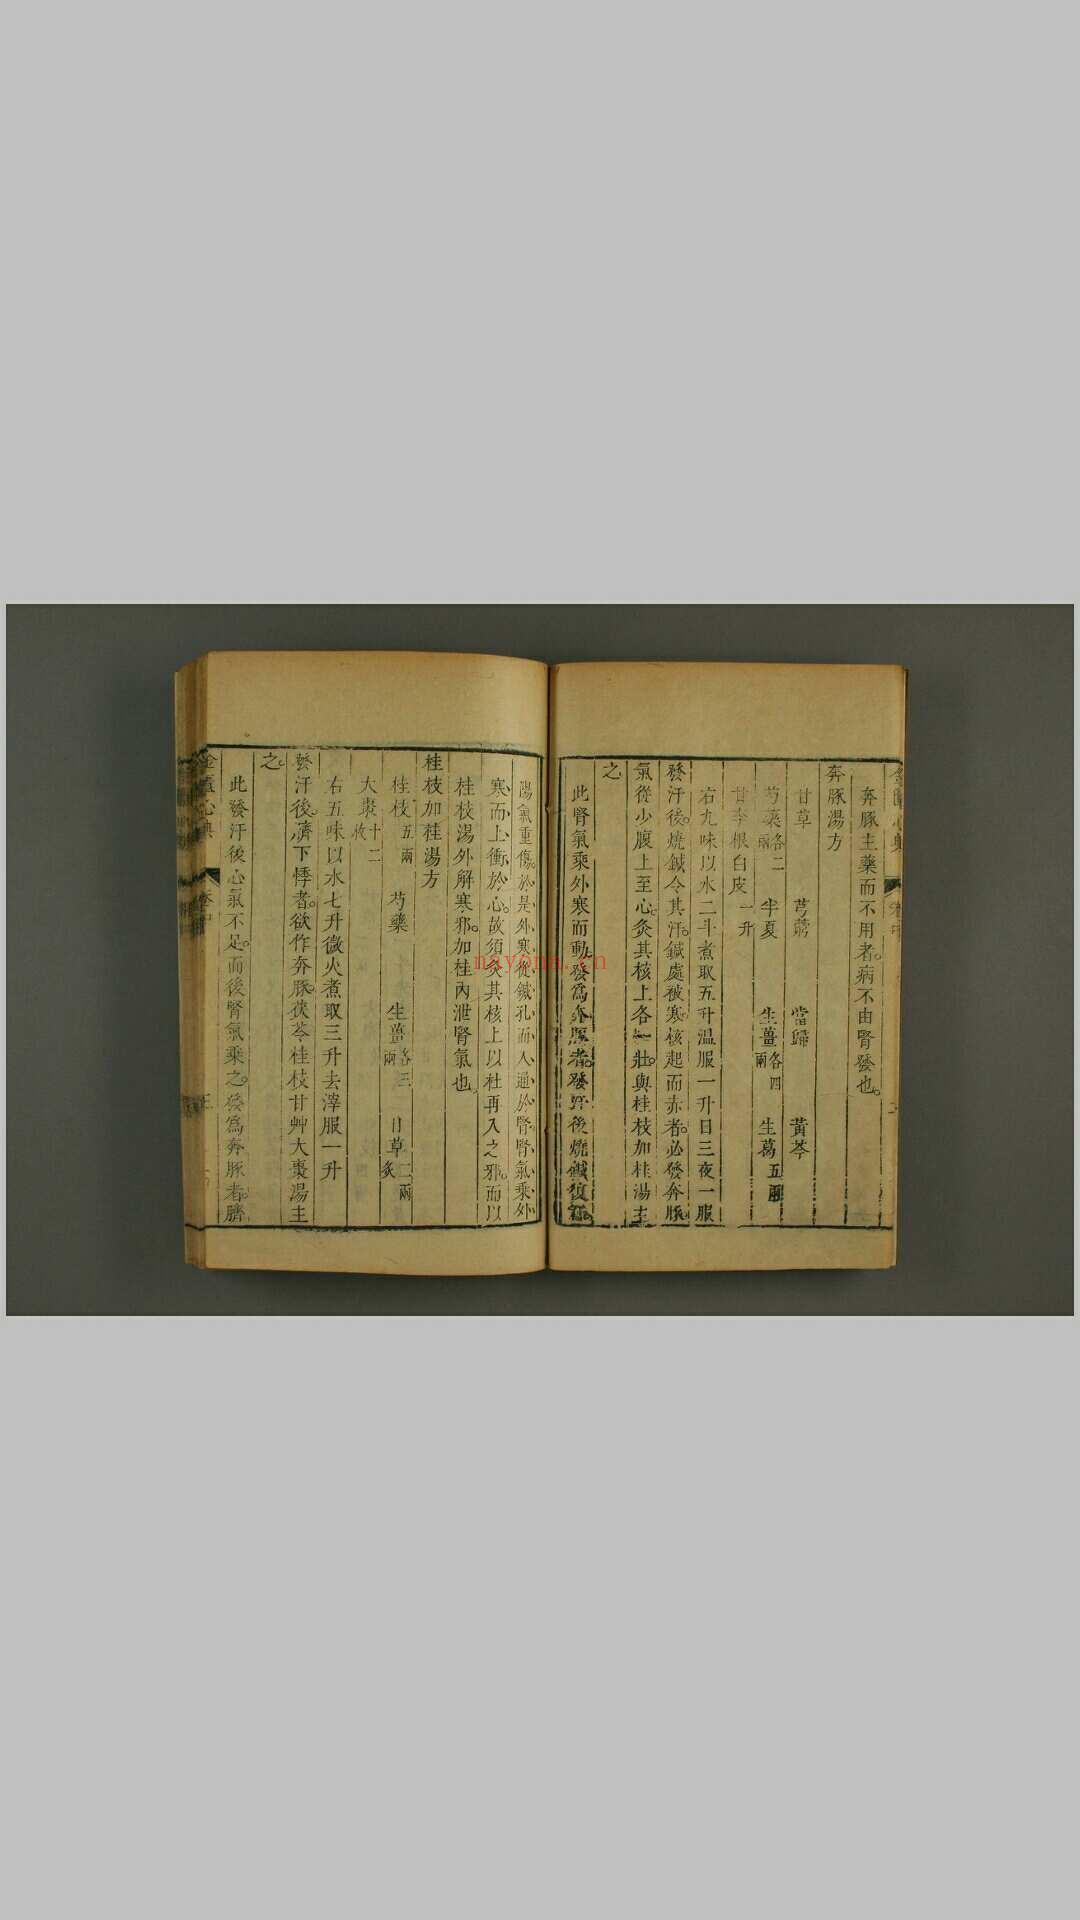 奔豚主藥而不用者。病不由腎發也。
奔豚湯方
甘草 芎藭 當歸 黃芩
芍藥各二兩 半夏 生薑各四兩 生葛五兩
甘李根白皮一升
右九味以水二斗煮取五升溫服一升日三夜一服
發汗後。燒鍼令其汗。鍼處被寒。核起而赤者。必發奔豚。
氣從少腹上至心。灸其核上各一壯。與桂枝加桂湯主
之。
此腎氣乘外寒而動。發爲奔豚者。發汗後燒鍼復汗。
陽氣重傷。於是外寒從鍼孔而入通於腎。腎氣乘外
寒而上衝於心。故須灸其核上以杜再入之邪。而以
桂枝湯外解寒邪。加桂內泄腎氣也
桂枝加桂湯方
桂枝五兩 芍藥 生薑各三兩 甘草二兩炙
大棗十二枚
右五味以水七升微火煮取三升去滓服一升
發汗後。臍下悸者。欲作奔豚。茯苓桂枝甘艸大棗湯主
之。
此發汗後心氣不足。而後腎氣乘之。發爲奔豚者。臍
金匱心典
卷中
nayona.cn